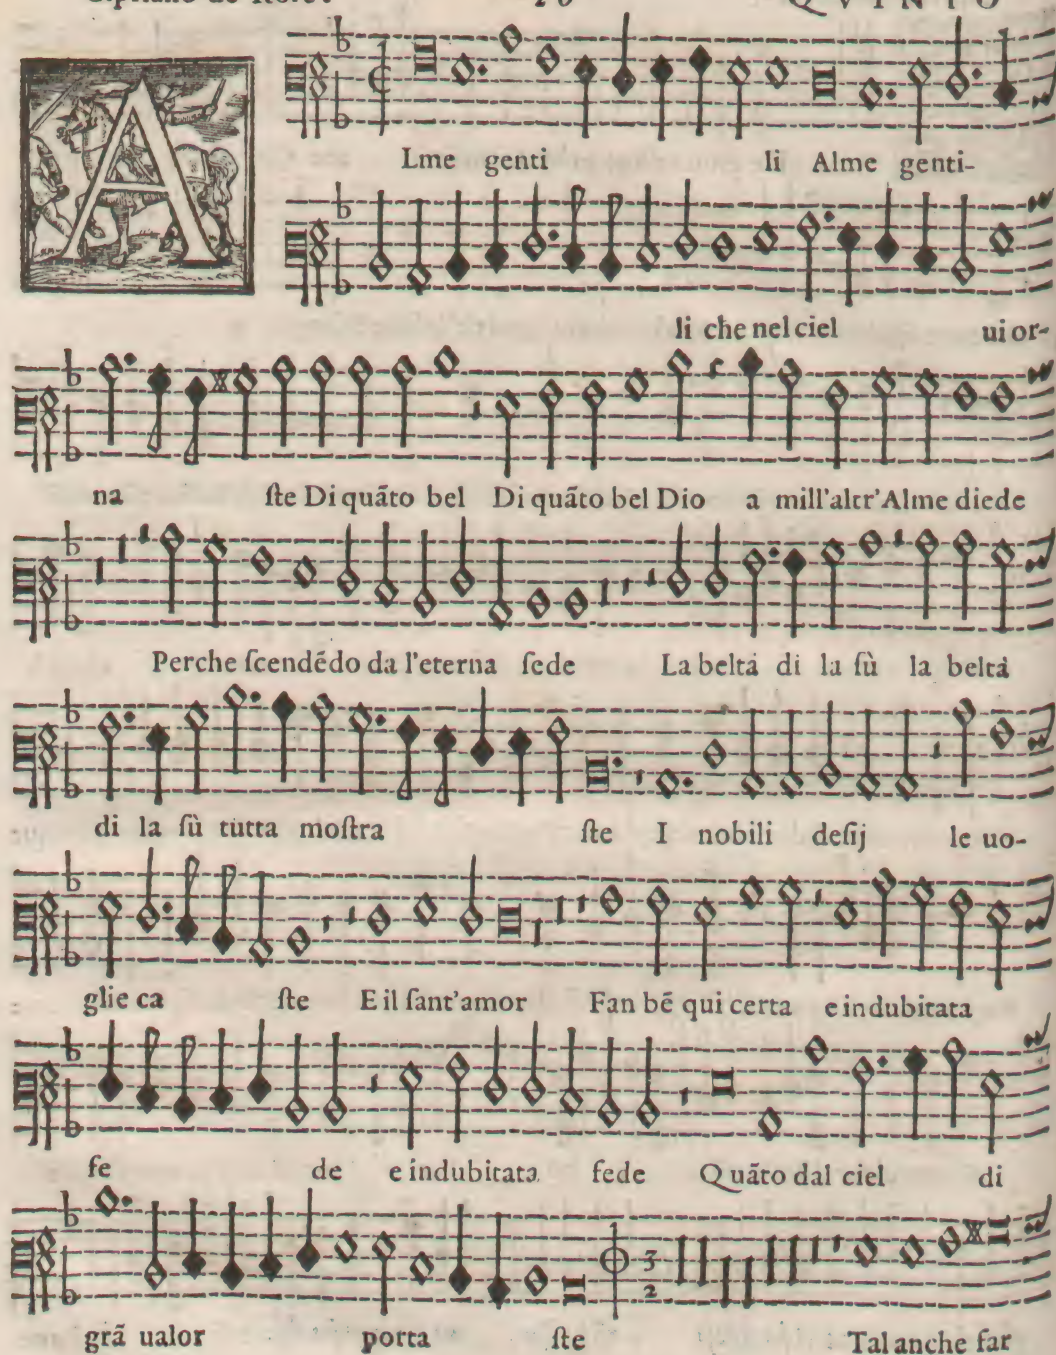 Cipriano de Rore. QVINTO
A
Lme genti li Alme genti-
li che nel ciel ui or-
na ſte Di quãto bel Di quãto bel Dio a mill'altr'Alme diede
Perche ſcendẽdo da l'eterna ſede La beltà di la ſù la beltà
di la ſù tutta moſtra ſte I nobili deſij le uo-
glie ca ſte E il ſant'amor Fan bẽ qui certa e indubitata
fe de e indubitata fede Quãto dal ciel di
3
2
grã ualor porta ſte Tal anche far